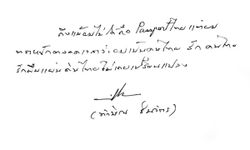 ถึงแม้ผมไม่ได้ถือ Passport ไทย แต่ผม
ตระหนักตลอดเวลาว่าผมเป็นคนไทย รักคนไทย
รักผืนแผ่นดินไทยไม่เคยเปลี่ยนแปลง
(ทักษิณ ชินวัตร)